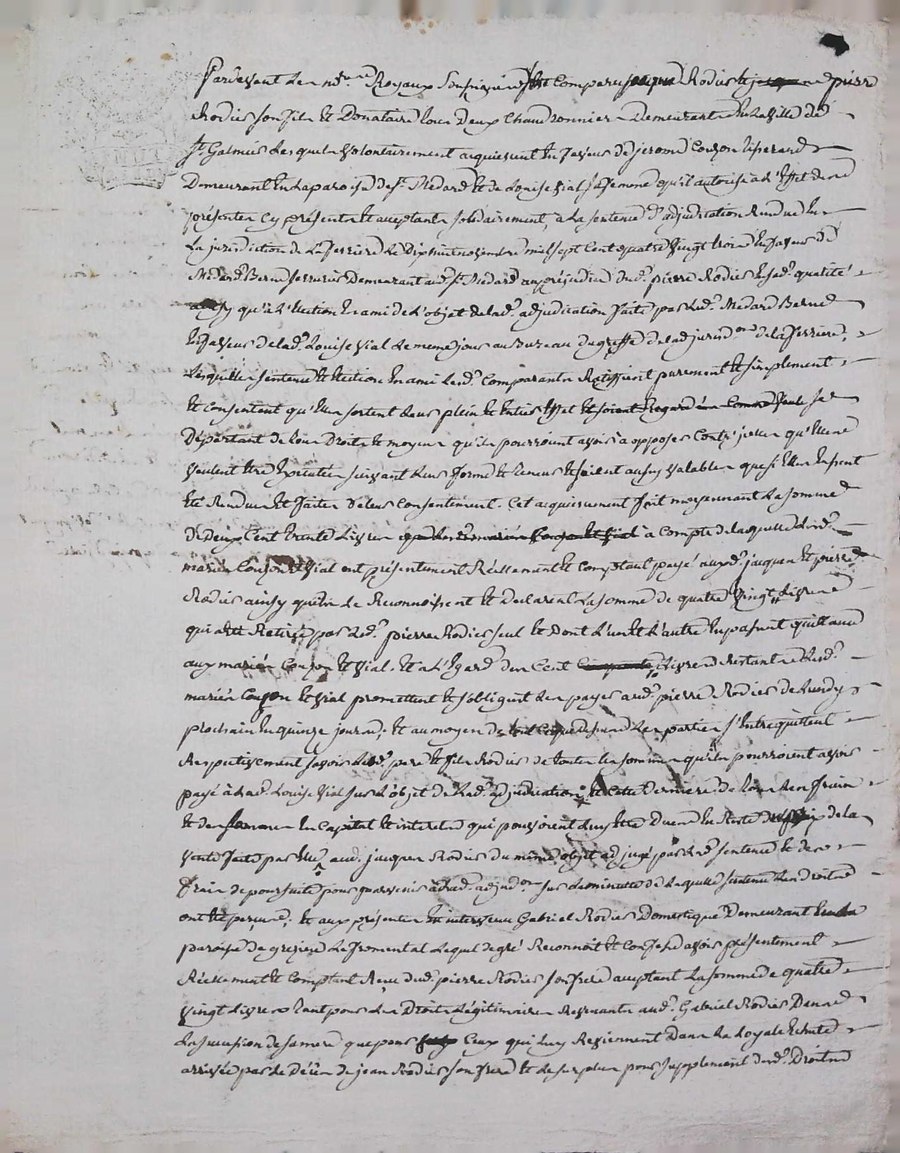 Pardevant les no.res Royaux Soussignés sont Comparus Jacques Rodier et pierre
Rodier son fils et Donataire tous Deux Chaudronniers Demeurants En la ville de
St Galmier Lesquels volontairement acquiescent En faveur de
Demeurant En la paroisse de St Medard et de Louise Vial sa femme qu'il autorise a l'Effet des
présentes cy présents et acceptants solidairement, a La sentence d'adjudication Rendue En
La jurisdiction de La ferriere Le Dixhuit novembre mil sept Cent quatre vingt trois En faveur de
Medard Demeurant aud. St Medard au préjudice dud. pierre Rodier En sad. qualité
qu'a l'Election En ami de l'objet de lad. adjudication faite par led. Medard
En faveur de lad. Louise Vial Le meme jour au Bureau du greffe de lad. jurisd.on de la ferriere,
Lesquelles sentence et Election En ami lesd. Comparants Ratiffient purement et simplement
et consentent qu'Elles sortent leur plein et Entier Effet et soient Regardées Comme se
Départant de tous Droits et moyens qu'ils pourroient avoir a opposer Contr'icelles qu'Elles
veulent Etre Executées suivant leur forme et teneur et soient aussy valables que si Elles Eussent
Eté Rendues et faites de leur Consentement. Cet acquiescement fait moyennant La somme
de Deux Cent trente Livres a Compte de laquelle lesd.
mariés Couzon et Vial ont présentement Réellement et Comptant payé auxd. jacques et pierre
Rodier ainsy qu'ils le Reconnoissent et Declarent La somme de quatre vingt Livres
qui a Eté Retirée par led. pierre Rodier seul et Dont l'un et l'autre En passent quittance
aux mariés Couzon et Vial. Et a l'Egard des Cent Livres Restantes Lesd.
mariés Couzon et Vial promettent et s'obligent de les payer aud. pierre Rodier de Lundy
prochain En quinze jours; Et au moyen de tout Ce que dessus Les parties s'Entrequittent
Respectivement savoir Lesd. pere et fils Rodier de toutes les sommes qu'ils pourroient avoir
payé à lad. Louise Vial sur l'objet de lad. adjudication, et Cette Derniere de tous les fraix
et des sommes En Capital et interets qui pouvoient luy Etre Dues En Reste de la
vente faite par Elle aud. jacques Rodier du même objet adjugé par lad. sentence et des
fraix de poursuite pour parvenir a lad. adjud.on sur la minute de laquelle sentence Les Droits
ont Eté perçus; Et aux présentes Est intervenu Gabriel Rodier Domestique Demeurant En la
paroisse de grezieu Le fromental Lequel de gré Reconnoit et Confesse avoir présentement
Réellement et Comptant Reçu dud. pierre Rodier son frere acceptant La somme de quatre
vingt Livres tant pour Les Droits Légitimaires Revenants aud. Gabriel Rodier Dans
La succession de sa mere que pour Ceux qui luy Reviennent Dans La Loyale Echute
arrivée par Le Décès de jean Rodier son frere et Le surplus pour supplement desd. Droits